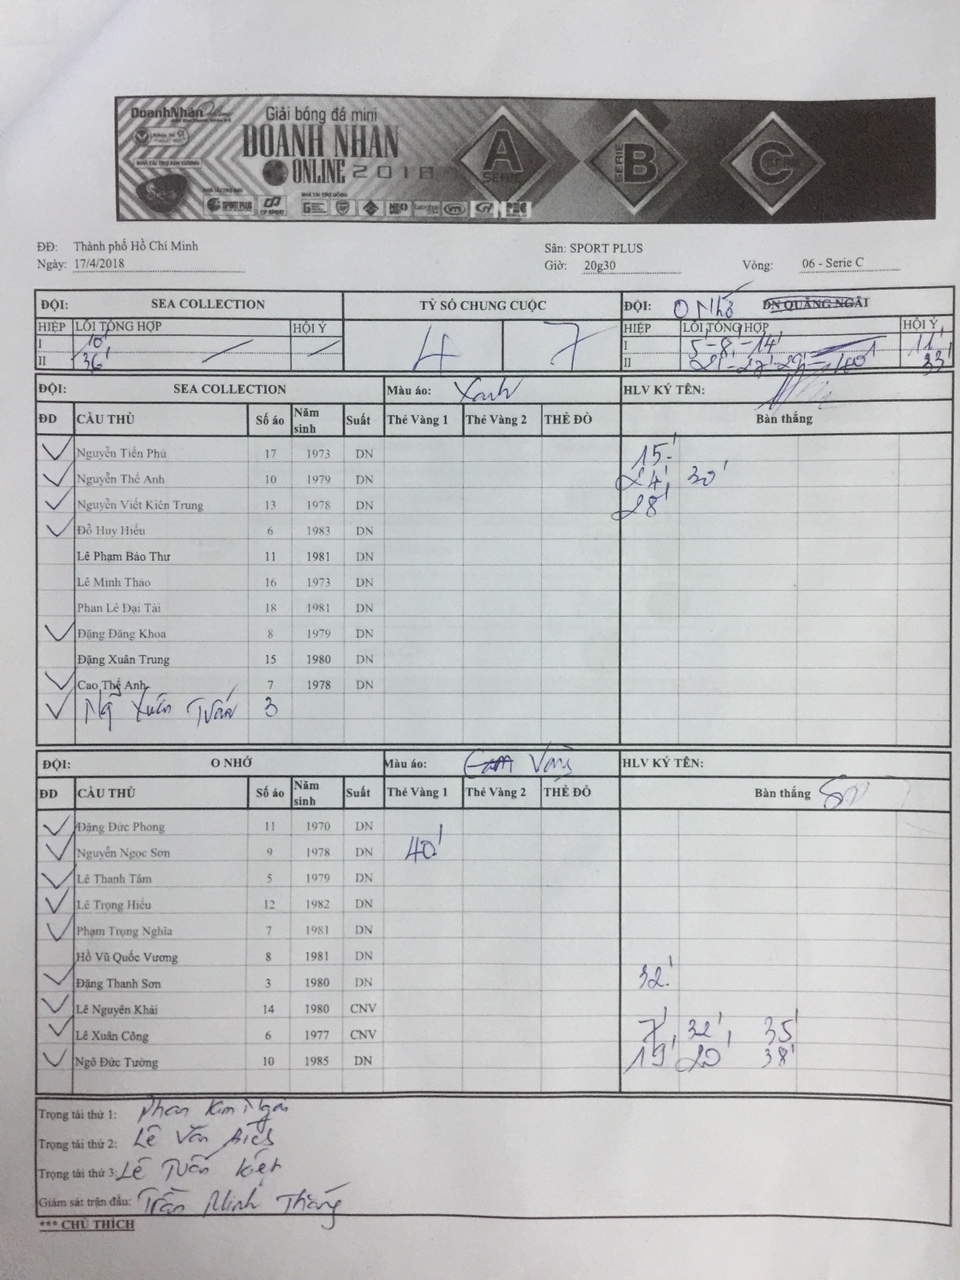 DoanhNhân Online
Giải bóng đá mini
DOANH NHÂN
ONLINE 2018
A SERIE
SERIE B
C SERIE
NHÀ TÀI TRỢ KIM CƯƠNG
SPORT PLUS
ĐĐ: Thành phố Hồ Chí Minh Sân: SPORT PLUS
Ngày: 17/4/2018 Giờ: 20g30 Vòng: 06 - Serie C
ĐỘI: SEA COLLECTION TỶ SỐ CHUNG CUỘC ĐỘI: O Nhớ DN QUẢNG NGÃI
HIỆP LỖI TỔNG HỢP HỘI Ý 4 7 HIỆP LỖI TỔNG HỢP HỘI Ý
I 10' I 5'-8'-14' 11'
II 36' II 21'-27'-29'-40' 33'
ĐỘI: SEA COLLECTION Màu áo: Xanh HLV KÝ TÊN:
ĐD CẦU THỦ Số áo Năm sinh Suất Thẻ Vàng 1 Thẻ Vàng 2 THẺ ĐỎ Bàn thắng
Nguyễn Tiến Phú 17 1973 DN 15'
Nguyễn Thế Anh 10 1979 DN 24' 30'
Nguyễn Viết Kiên Trung 13 1978 DN 28'
Đỗ Huy Hiếu 6 1983 DN
Lê Phạm Bảo Thư 11 1981 DN
Lê Minh Thảo 16 1973 DN
Phan Lê Đại Tài 18 1981 DN
Đặng Đăng Khoa 8 1979 DN
Đặng Xuân Trung 15 1980 DN
Cao Thế Anh 7 1978 DN
Ng Xuân Tuấn 3
ĐỘI: O NHỚ Màu áo: Cam Vàng HLV KÝ TÊN:
ĐD CẦU THỦ Số áo Năm sinh Suất Thẻ Vàng 1 Thẻ Vàng 2 THẺ ĐỎ Bàn thắng
Đặng Đức Phong 11 1970 DN
Nguyễn Ngọc Sơn 9 1978 DN 40'
Lê Thanh Tâm 5 1979 DN
Lê Trọng Hiếu 12 1982 DN
Phạm Trọng Nghĩa 7 1981 DN
Hồ Vũ Quốc Vương 8 1981 DN
Đặng Thanh Sơn 3 1980 DN 32'
Lê Nguyên Khải 14 1980 CNV
Lê Xuân Công 6 1977 CNV 7', 32', 35'
Ngô Đức Tường 10 1985 DN 19' 20' 38'
Trọng tài thứ 1: Phan Kim Ngọc
Trọng tài thứ 2: Lê Văn
Trọng tài thứ 3: Lê Tuấn Kiệt
Giám sát trận đấu: Trần Minh Thắng
*** CHÚ THÍCH